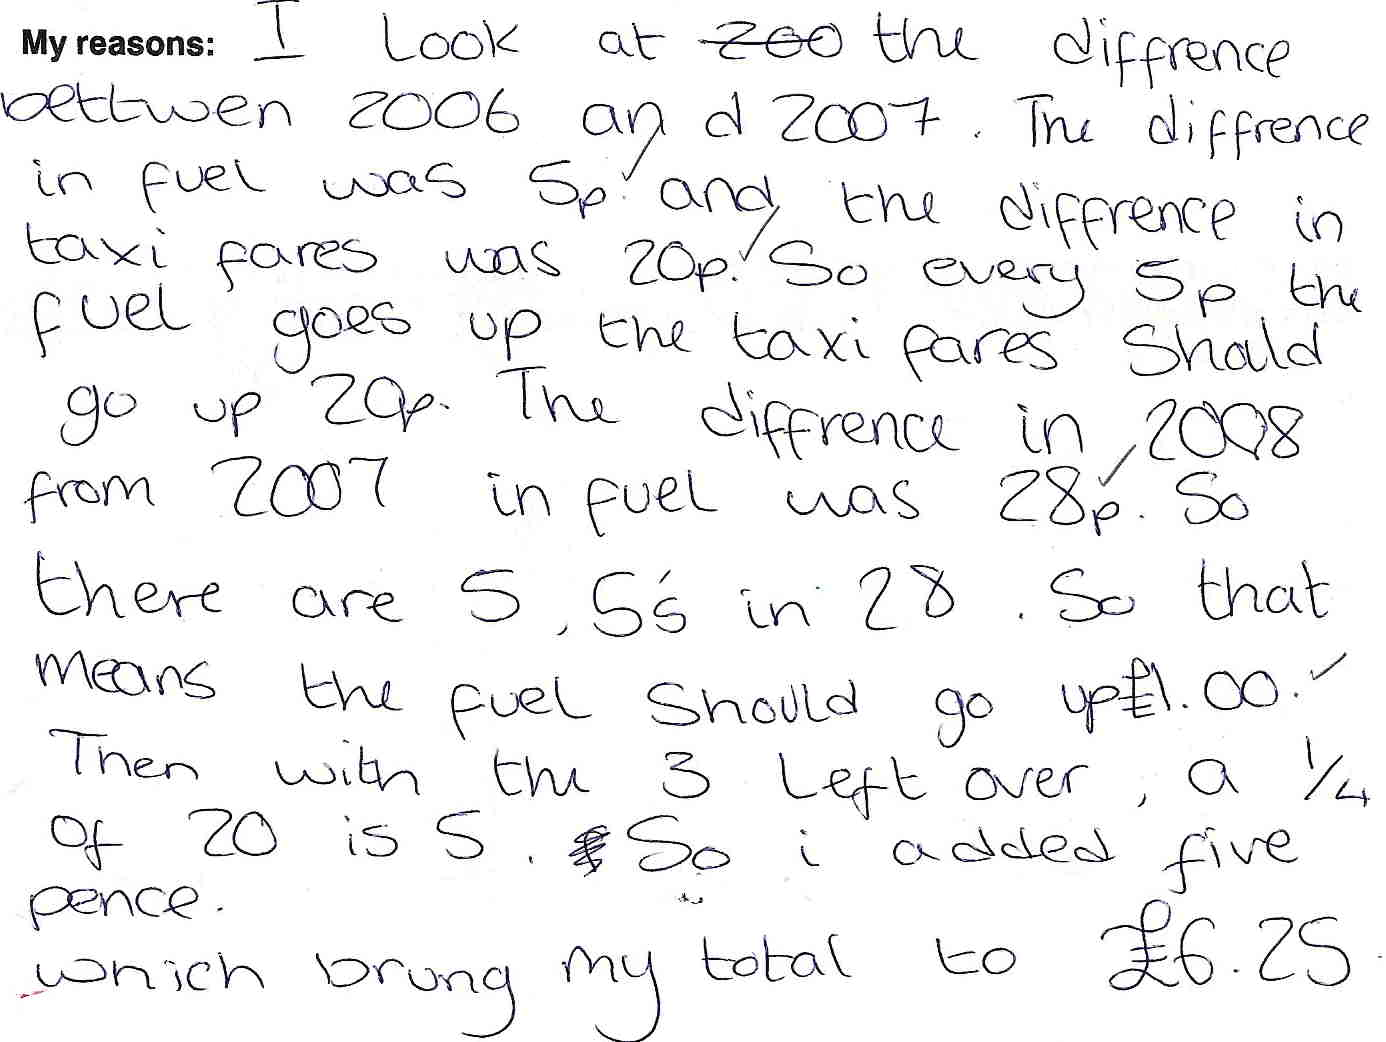 My reasons: I Look at 200 the diffrence
bettwen 2006 and 2007. The diffrence
in fuel was 5p and the diffrence in
taxi fares was 20p. So every 5p the
fuel goes up the taxi fares Should
go up 20p. The diffrence in 2008
from 2007 in fuel was 28p. So
there are 5, 5's in 28. So that
means the fuel Should go up £1.00.
Then with the 3 Left over, a 1/4
of 20 is 5. So i added five
pence.
which brung my total to £6.25